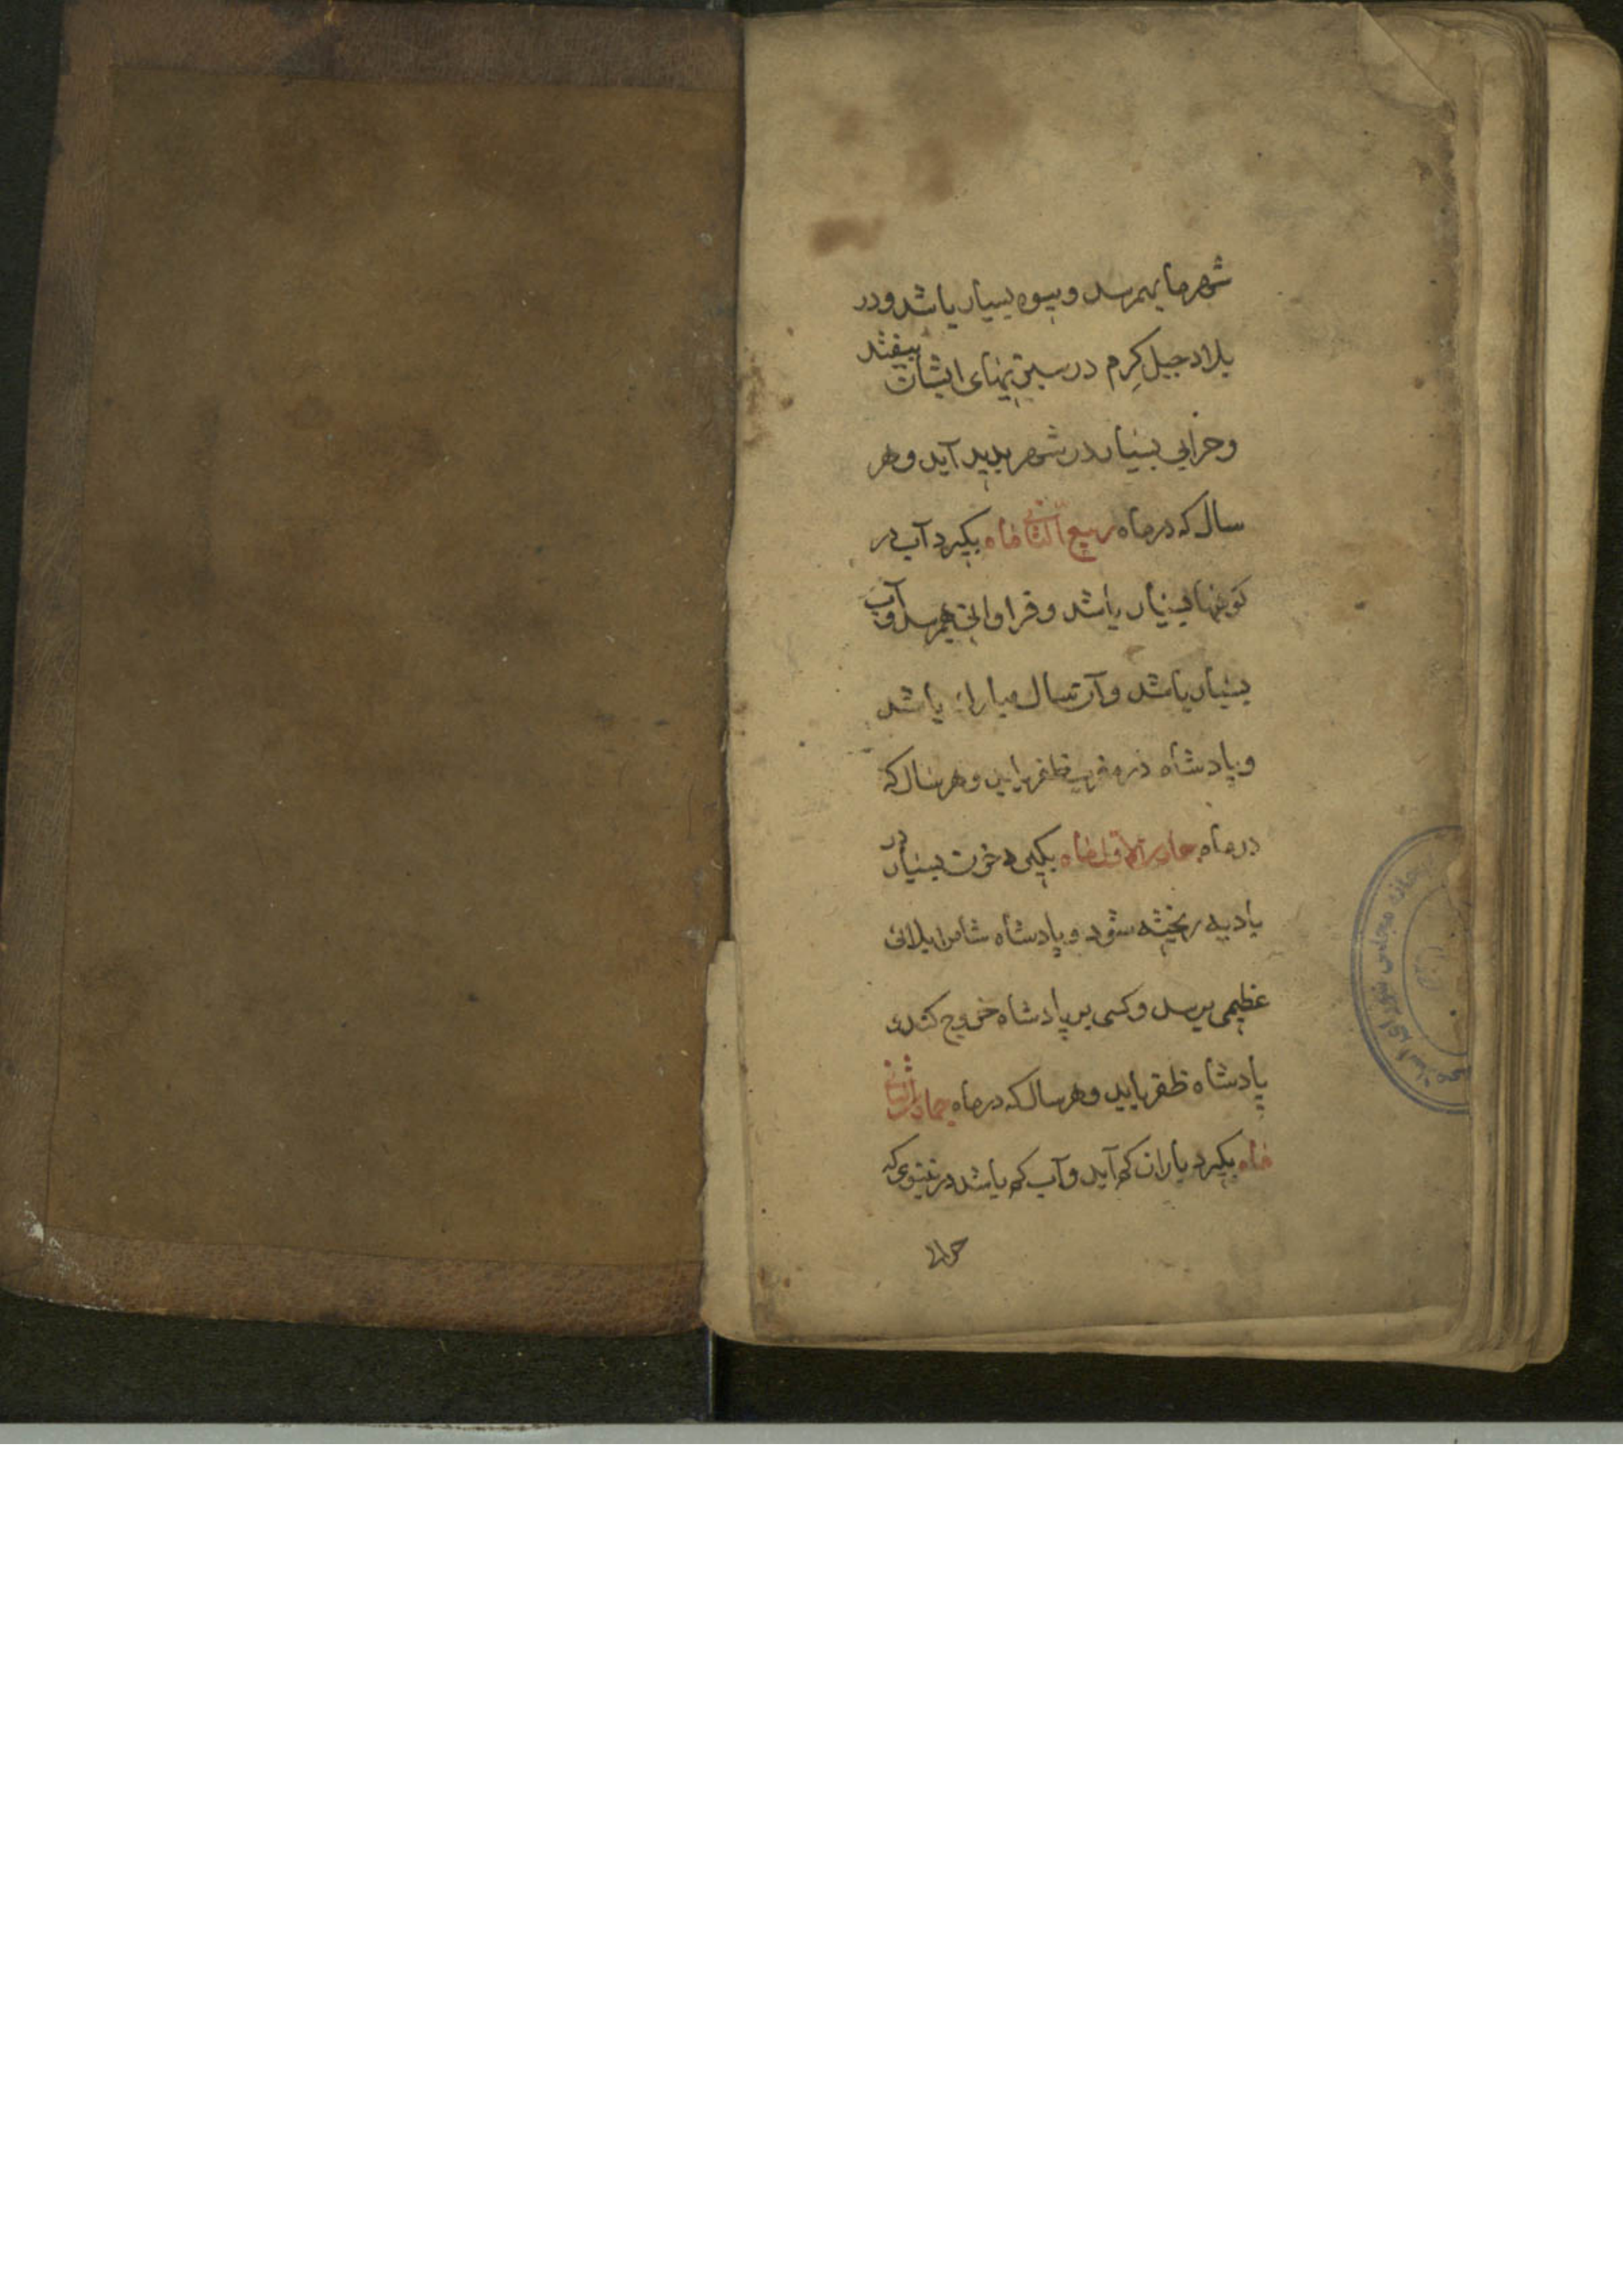 شهرها بهم رسد و میوه بسیار باشد و در
بلاد جبل کرم در سبزیهای ایشان بیفتد
و خرابی بسیار در شهر پدید آید و هر
سال که در ماه ربیع الثانی ماه بگیرد آب در
بسیار باشد و فراوانی بهم رسد و آب
بسیار باشد و آن سال مبارک باشد
و پادشاه در مغرب ظفر یابد و هر سال که
در ماه جمادی الاول ماه بگیرد خون بسیار در
بادیه ریخته شود و پادشاه شام را بلائی
عظیمی برسد و کسی بر پادشاه خروج کند و
پادشاه ظفر یابد و هر سال که در ماه جمادی الثانی
ماه بگیرد باران کم آید و آب کم باشد در نینوی که
کتابخانه مجلس شورای